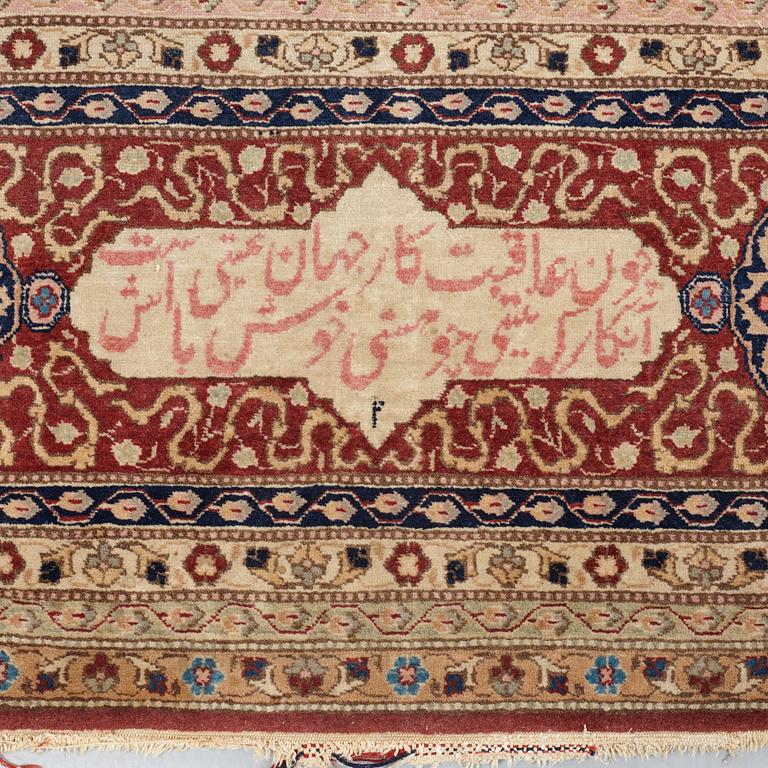 چون عاقبت کار جهان نیستی است
انگار که نیستی چو هستی خوش باش
۴